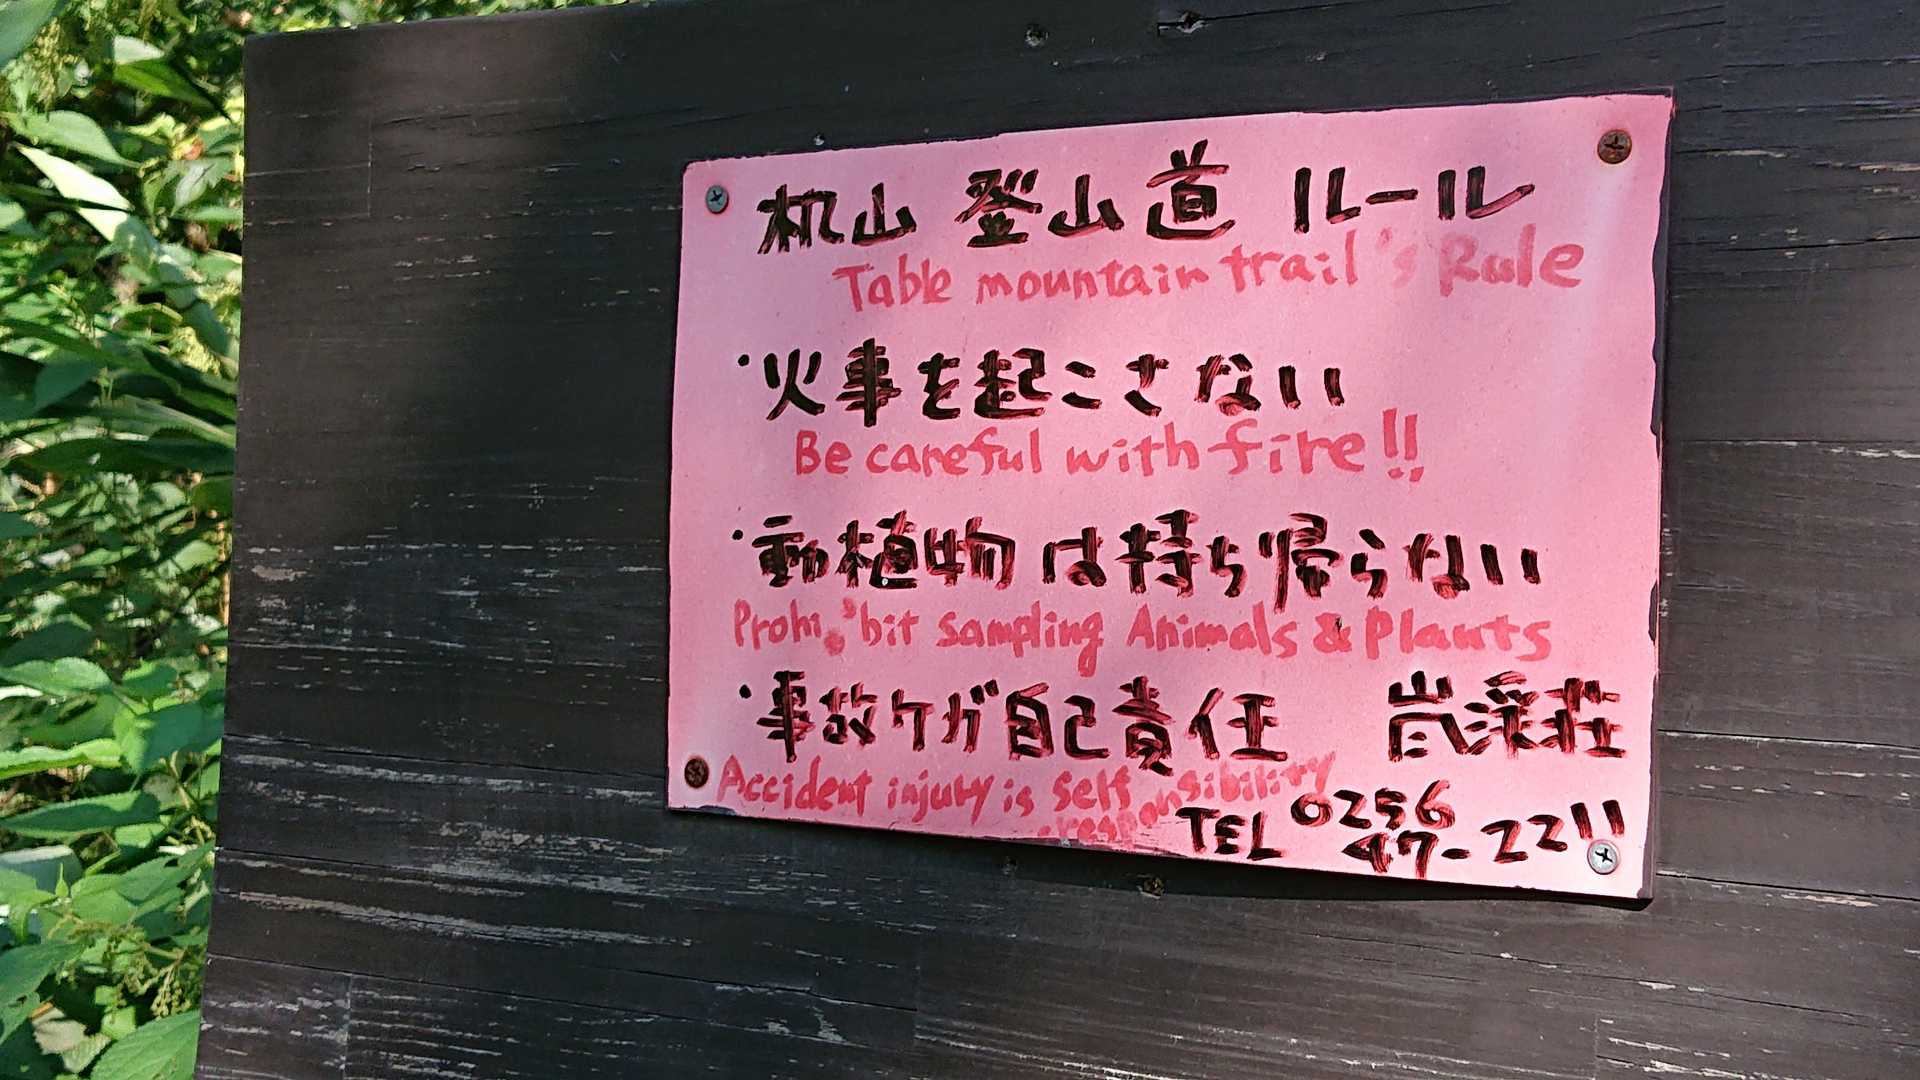 机山 登山道 ルール
Table mountain trail's Rule
・火事を起こさない
Be careful with fire!!
・動植物は持ち帰らない
Prohibit sampling Animals & Plants
・事故ケガ自己責任 嵐渓荘
Accident injury is self
-responsibility
TEL 0256
47-2211